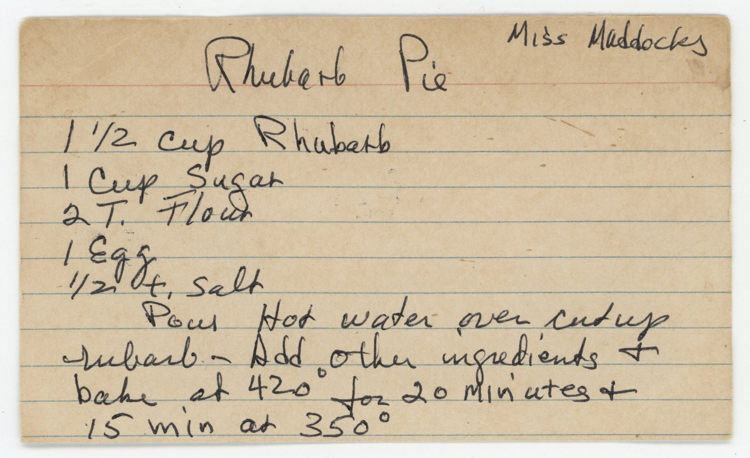 Miss Maddocks
Rhubarb Pie
1 1/2 cup Rhubarb
1 Cup Sugar
2 T. Flour
1 Egg
1/2 t. Salt
Pour Hot water over cut up
rubarb - Add other ingredients +
bake at 420° for 20 minutes +
15 min at 350°